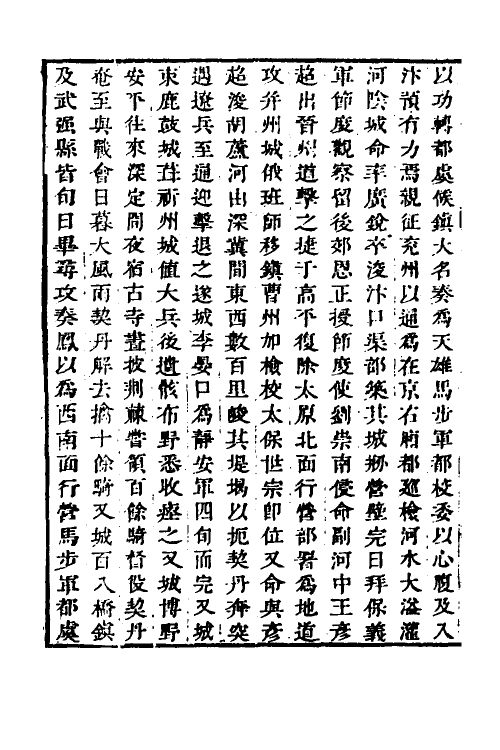 以功轉都虞候鎮大名奏為天雄馬步軍都校委以心腹及入
汴預有力焉親征兗州以通為在京右廂都巡檢河水大溢灌
河陰城命率廣銳卒浚汴口渠部築其城刱營壁完日拜保義
軍節度觀察留後郊恩正授節度使劉崇南侵命副河中王彥
超出晉州道擊之捷于高平復除太原北面行營部署為地道
攻并州城俄班師移鎮曹州加檢校太保世宗即位又命與彥
超浚胡蘆河由深冀間東西數百里峻其堤堨以扼契丹奔突
遇遼兵至通迎擊退之遂城李晏口為靜安軍四旬而完又城
束鹿鼓城葺祈州城値大兵後遺骸布野悉收瘞之又城博野
安平往來深定間夜宿古寺晝披荆棘嘗領百餘騎督役契丹
奄至與戰會日暮大風雨契丹解去擒十餘騎又城百八橋鎮
及武强縣皆旬日畢尋攻秦鳳以為西南面行營馬步軍都虞